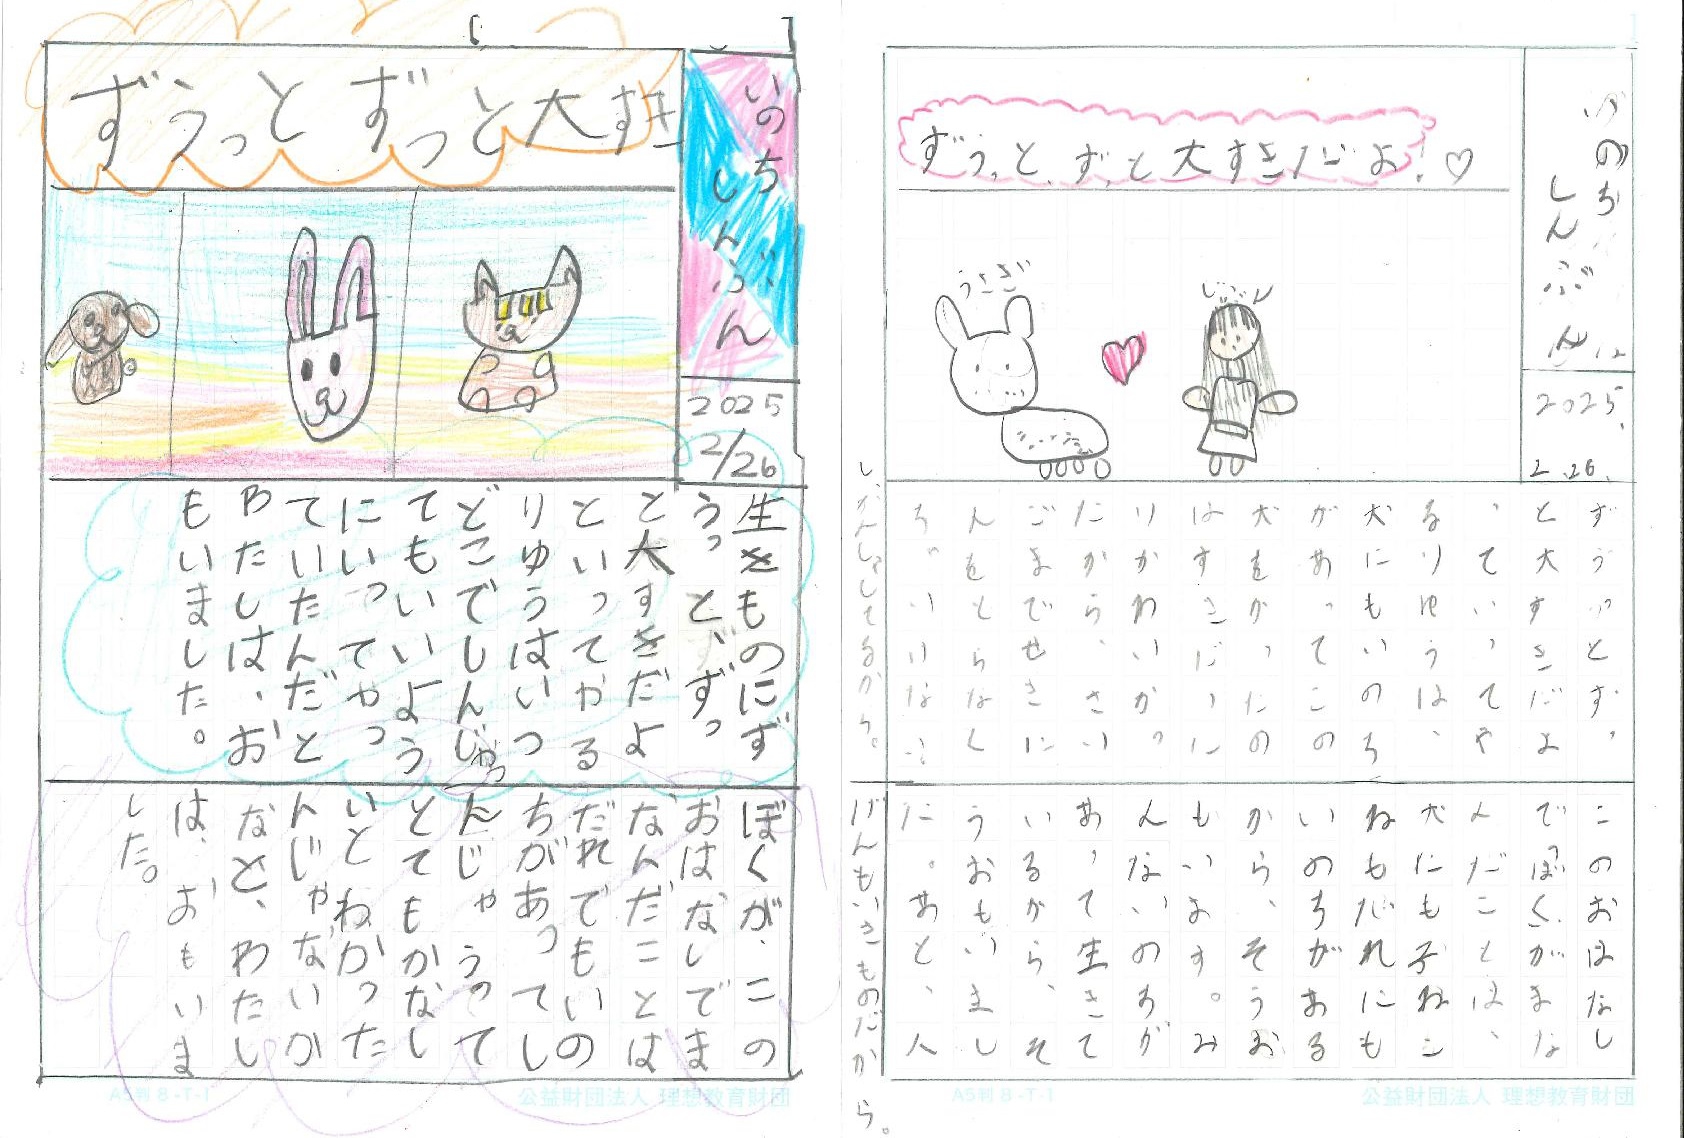 いのちしんぶん
2025
2/26
ずうっと ずっと大すき
生きものにず
うっと、ずっ
と大すきだよ
といってやる
りゆうはいつ
どこでしんじゃっ
てもいいよう
にいってやっ
ていたんだと
わたしは、お
もいました。
ぼくが、この
おはなしでま
なんだことは
だれでもいの
ちがあってし
んじゃうって
とてもかなし
いとわかった
んじゃないか
なと、わたし
は、おもいま
した。
A5判 8-T-1
公益財団法人 理想教育財団
いのち
しんぶん
2025.
2.26.
ずうっと、ずっと大すきだよ!♡
うさぎ
じぶん
ずうっとずっ
と大すきだよ
っていってや
るりゆうは、
犬にもいのち
があってこの
犬をかったの
はすきだった
りかわいかっ
たから、さい
ごまでせきに
んをとらなく
ちゃいけない
し、かんしゃしてるから。
このおはなし
でぼくがまな
んだことは、
犬にも子ねこ
ねもだれにも
いのちがある
から、そうお
もいます。み
んないのちが
あって生きて
いるから、そ
うおもいまし
た。あと、人
げんもいきものだから。
A5判 8-T-1
公益財団法人 理想教育財団